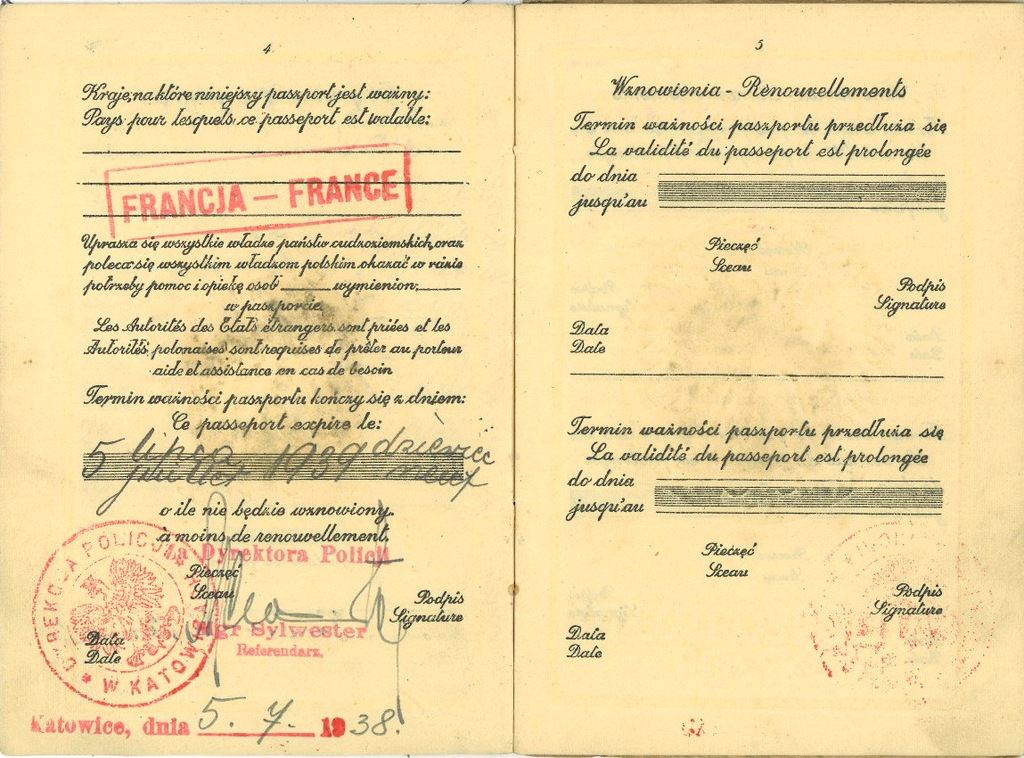 4
Kraje, na które niniejszy paszport jest ważny:
Pays pour lesquels ce passeport est valable:
FRANCJA — FRANCE
Uprasza się wszystkie władze państw cudzoziemskich, oraz
poleca się wszystkim władzom polskim okazać w razie
potrzeby pomoc i opiekę osob____ wymienion____
w paszporcie.
Les Autorités des Etats étrangers sont priées et les
Autorités polonaises sont requises de prêter au porteur
aide et assistance en cas de besoin
Termin ważności paszportu kończy się z dniem:
Ce passeport expire le:
5 lipca 1939 dziewięć
juillet neuf
o ile nie będzie wznowiony.
à moins de renouvellement.
za Dyrektora Policji
DYREKCJA POLICJI * W KATOWICACH *
Pieczęć
Sceau
Podpis
Signature
Mgr Sylwester
Referendarz.
Data
Date
Katowice, dnia 5. 7. 1938.
5
Wznowienia - Renouvellements
Termin ważności paszportu przedłuża się
La validité du passeport est prolongée
do dnia
jusqu'au
Pieczęć
Sceau
Podpis
Signature
Data
Date
Termin ważności paszportu przedłuża się
La validité du passeport est prolongée
do dnia
jusqu'au
Pieczęć
Sceau
Podpis
Signature
Data
Date